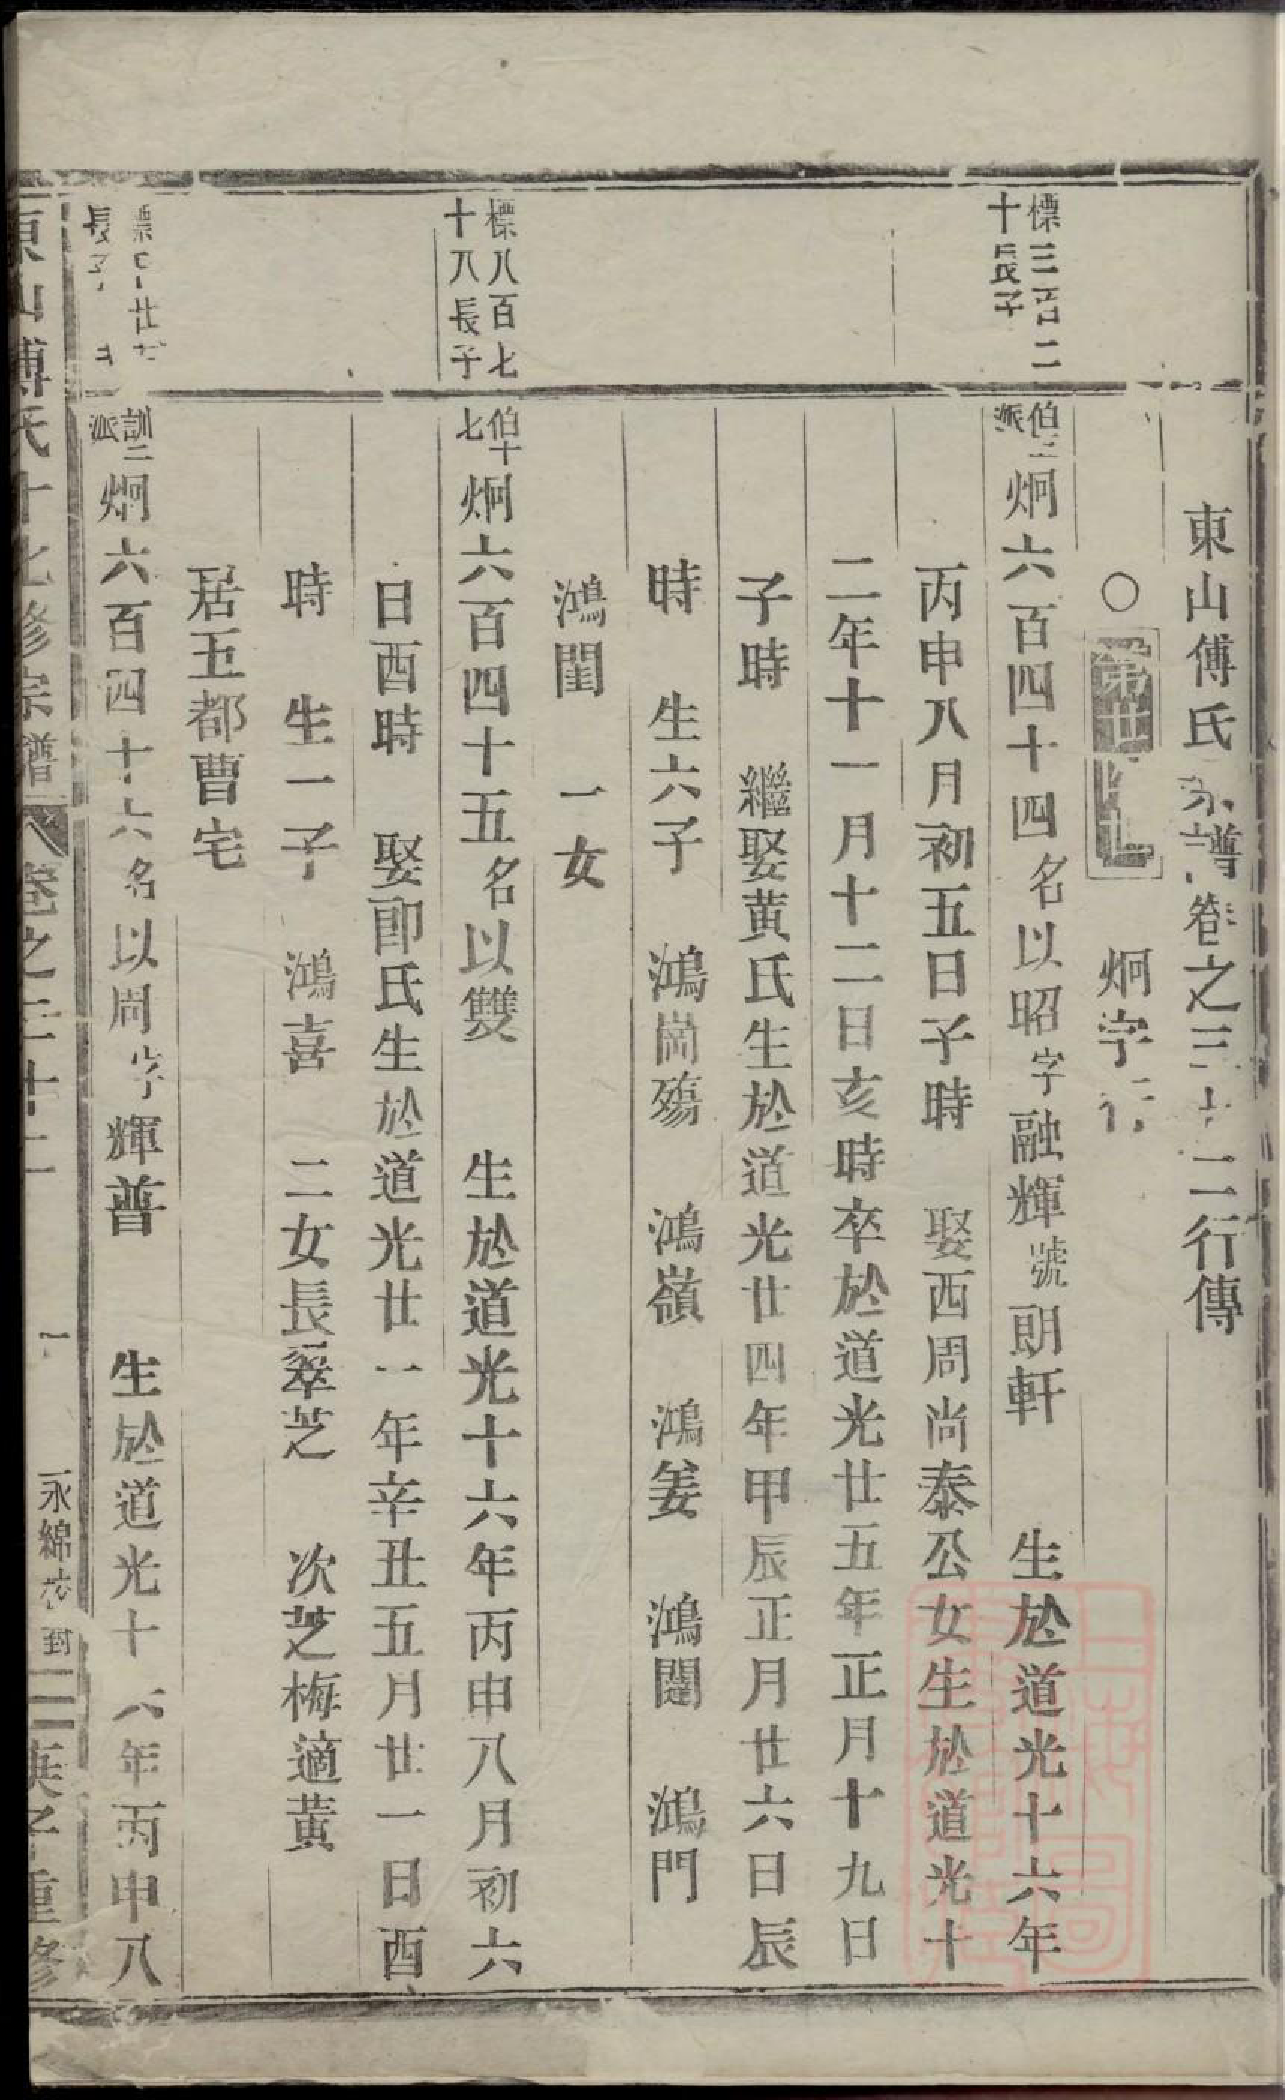 東山傅氏宗譜卷之三十二行傳
○ 炯字行
標三百二
十長子
伯三
派
炯六百四十四名以昭字融輝號朗軒 生於道光十六年
丙申八月初五日子時 娶西周尚泰公女生於道光十
二年十一月十二日亥時卒於道光廿五年正月十九日
子時 繼娶黃氏生於道光廿四年甲辰正月廿六日辰
時 生六子 鴻崗殤 鴻嶺 鴻姜 鴻闓 鴻門
鴻閨 一女
標八百七
十八長子
伯十
七
炯六百四十五名以雙 生於道光十六年丙申八月初六
日酉時 娶郎氏生於道光廿一年辛丑五月廿一日酉
時 生一子 鴻喜 二女長翠芝 次芝梅適黃
居五都曹宅
長子
訓二
派
炯六百四十六名以周字輝普 生於道光十六年丙申八
東山傅氏十七修宗譜 卷之三十二 一 永綿校對
重修